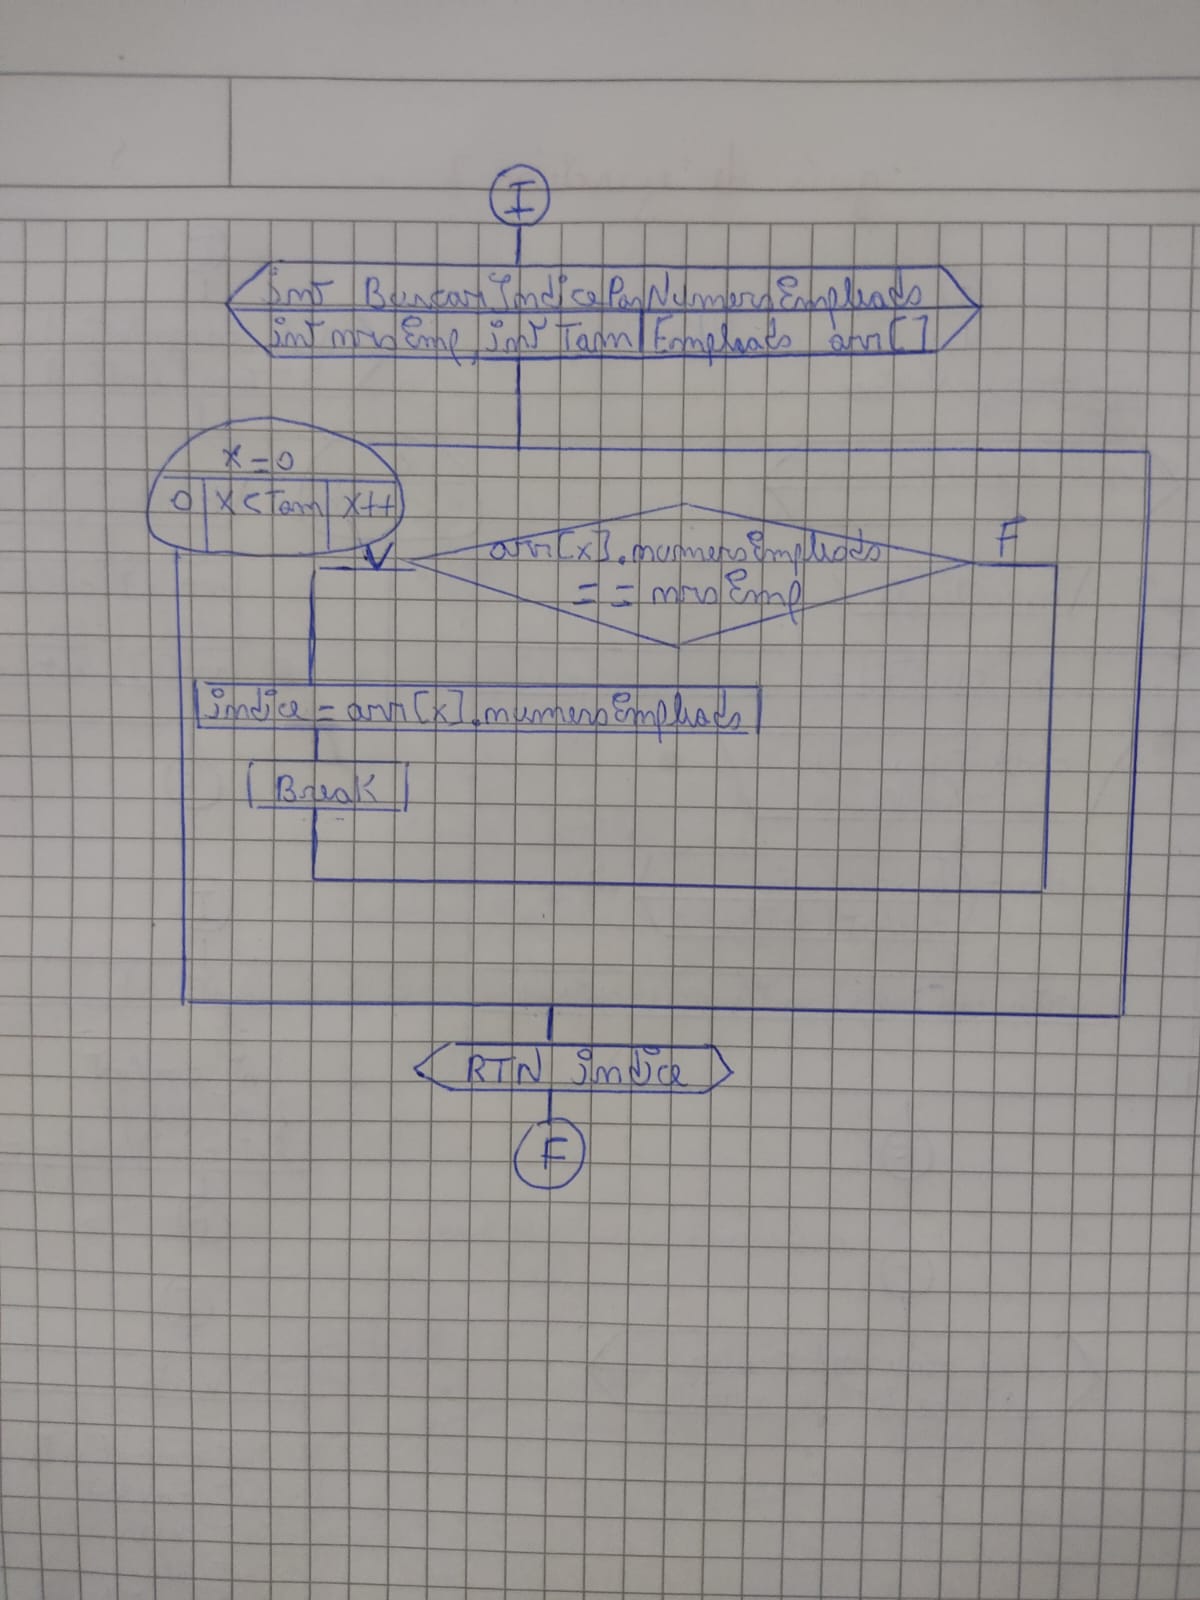 I
int BuscarIndicePorNumeroEmpleado
int nroEmp, int Tam Empleado arr[]
x=0
0 x<Tam x++
V
arr[x].numeroEmpleado
== nroEmp
F
indice = arr[x].numeroEmpleado
Break
RTN indice
F